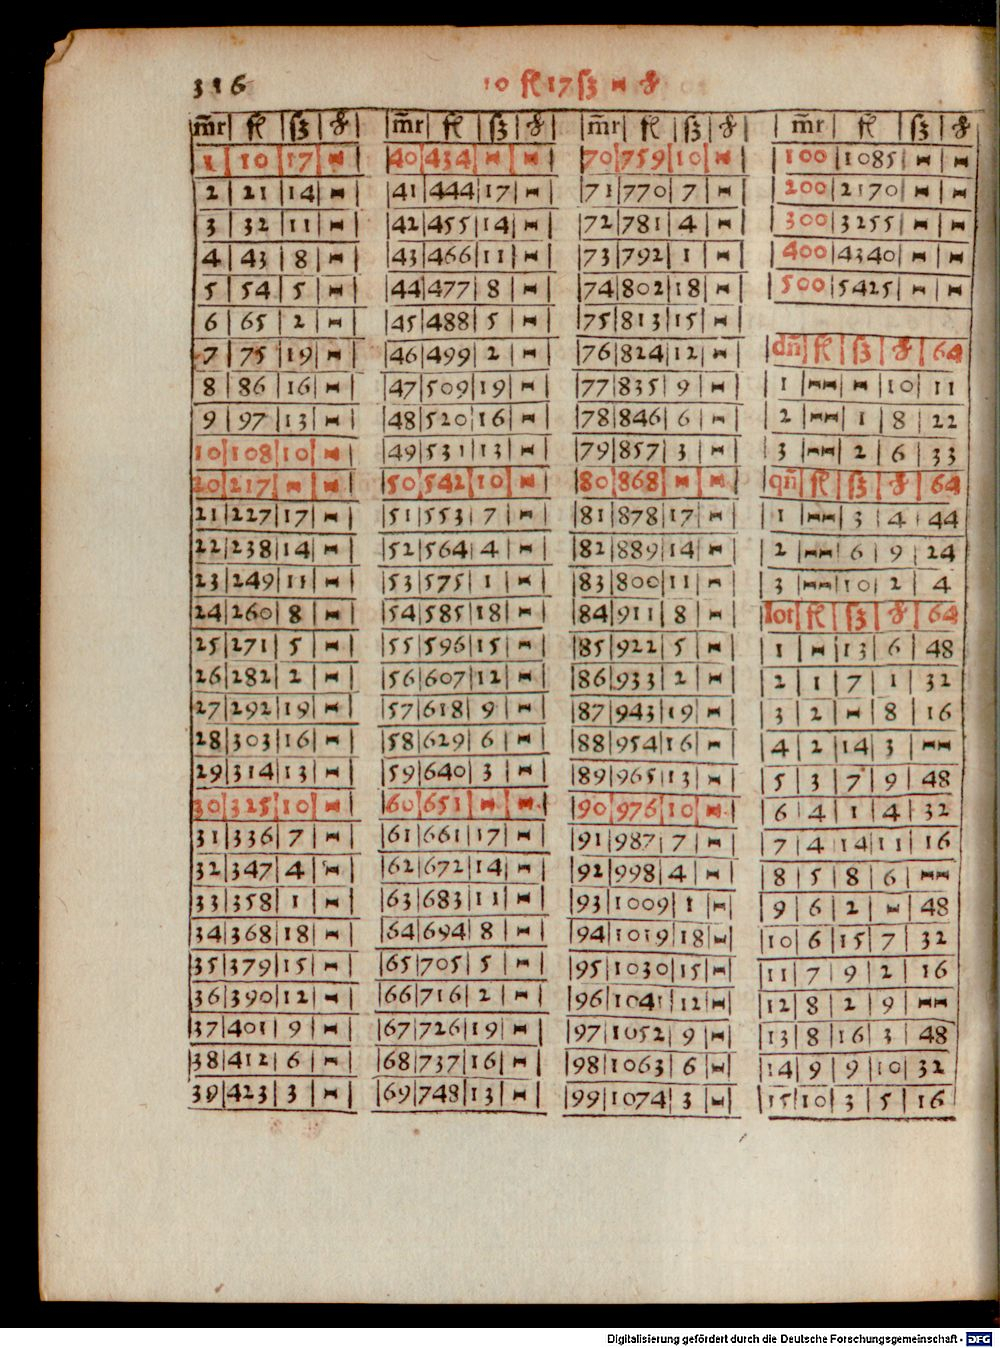 316 10 fl 17 ß - ₰
m̃r fl ß ₰
1 10 17 -
2 21 14 -
3 32 11 -
4 43 8 -
5 54 5 -
6 65 2 -
7 75 19 -
8 86 16 -
9 97 13 -
10 108 10 -
20 217 - -
21 227 17 -
22 238 14 -
23 249 11 -
24 260 8 -
25 271 5 -
26 282 2 -
27 292 19 -
28 303 16 -
29 314 13 -
30 325 10 -
31 336 7 -
32 347 4 -
33 358 1 -
34 368 18 -
35 379 15 -
36 390 12 -
37 401 9 -
38 412 6 -
39 423 3 -
m̃r fl ß ₰
40 434 - -
41 444 17 -
42 455 14 -
43 466 11 -
44 477 8 -
45 488 5 -
46 499 2 -
47 509 19 -
48 520 16 -
49 531 13 -
50 542 10 -
51 553 7 -
52 564 4 -
53 575 1 -
54 585 18 -
55 596 15 -
56 607 12 -
57 618 9 -
58 629 6 -
59 640 3 -
60 651 - -
61 661 17 -
62 672 14 -
63 683 11 -
64 694 8 -
65 705 5 -
66 716 2 -
67 726 19 -
68 737 16 -
69 748 13 -
m̃r fl ß ₰
70 759 10 -
71 770 7 -
72 781 4 -
73 792 1 -
74 802 18 -
75 813 15 -
76 824 12 -
77 835 9 -
78 846 6 -
79 857 3 -
80 868 - -
81 878 17 -
82 889 14 -
83 800 11 -
84 911 8 -
85 922 5 -
86 933 2 -
87 943 19 -
88 954 16 -
89 965 13 -
90 976 10 -
91 987 7 -
92 998 4 -
93 1009 1 -
94 1019 18 -
95 1030 15 -
96 1041 12 -
97 1052 9 -
98 1063 6 -
99 1074 3 -
m̃r fl ß ₰
100 1085 - -
200 2170 - -
300 3255 - -
400 4340 - -
500 5425 - -
dñ fl ß ₰ 64
1 -- - 10 11
2 -- 1 8 22
3 -- 2 6 33
qñ fl ß ₰ 64
1 -- 3 4 44
2 -- 6 9 24
3 -- 10 2 4
lot fl ß ₰ 64
1 - 13 6 48
2 1 7 1 32
3 2 - 8 16
4 2 14 3 --
5 3 7 9 48
6 4 1 4 32
7 4 14 11 16
8 5 8 6 --
9 6 2 - 48
10 6 15 7 32
11 7 9 2 16
12 8 2 9 --
13 8 16 3 48
14 9 9 10 32
15 10 3 5 16
Digitalisierung gefördert durch die Deutsche Forschungsgemeinschaft - DFG